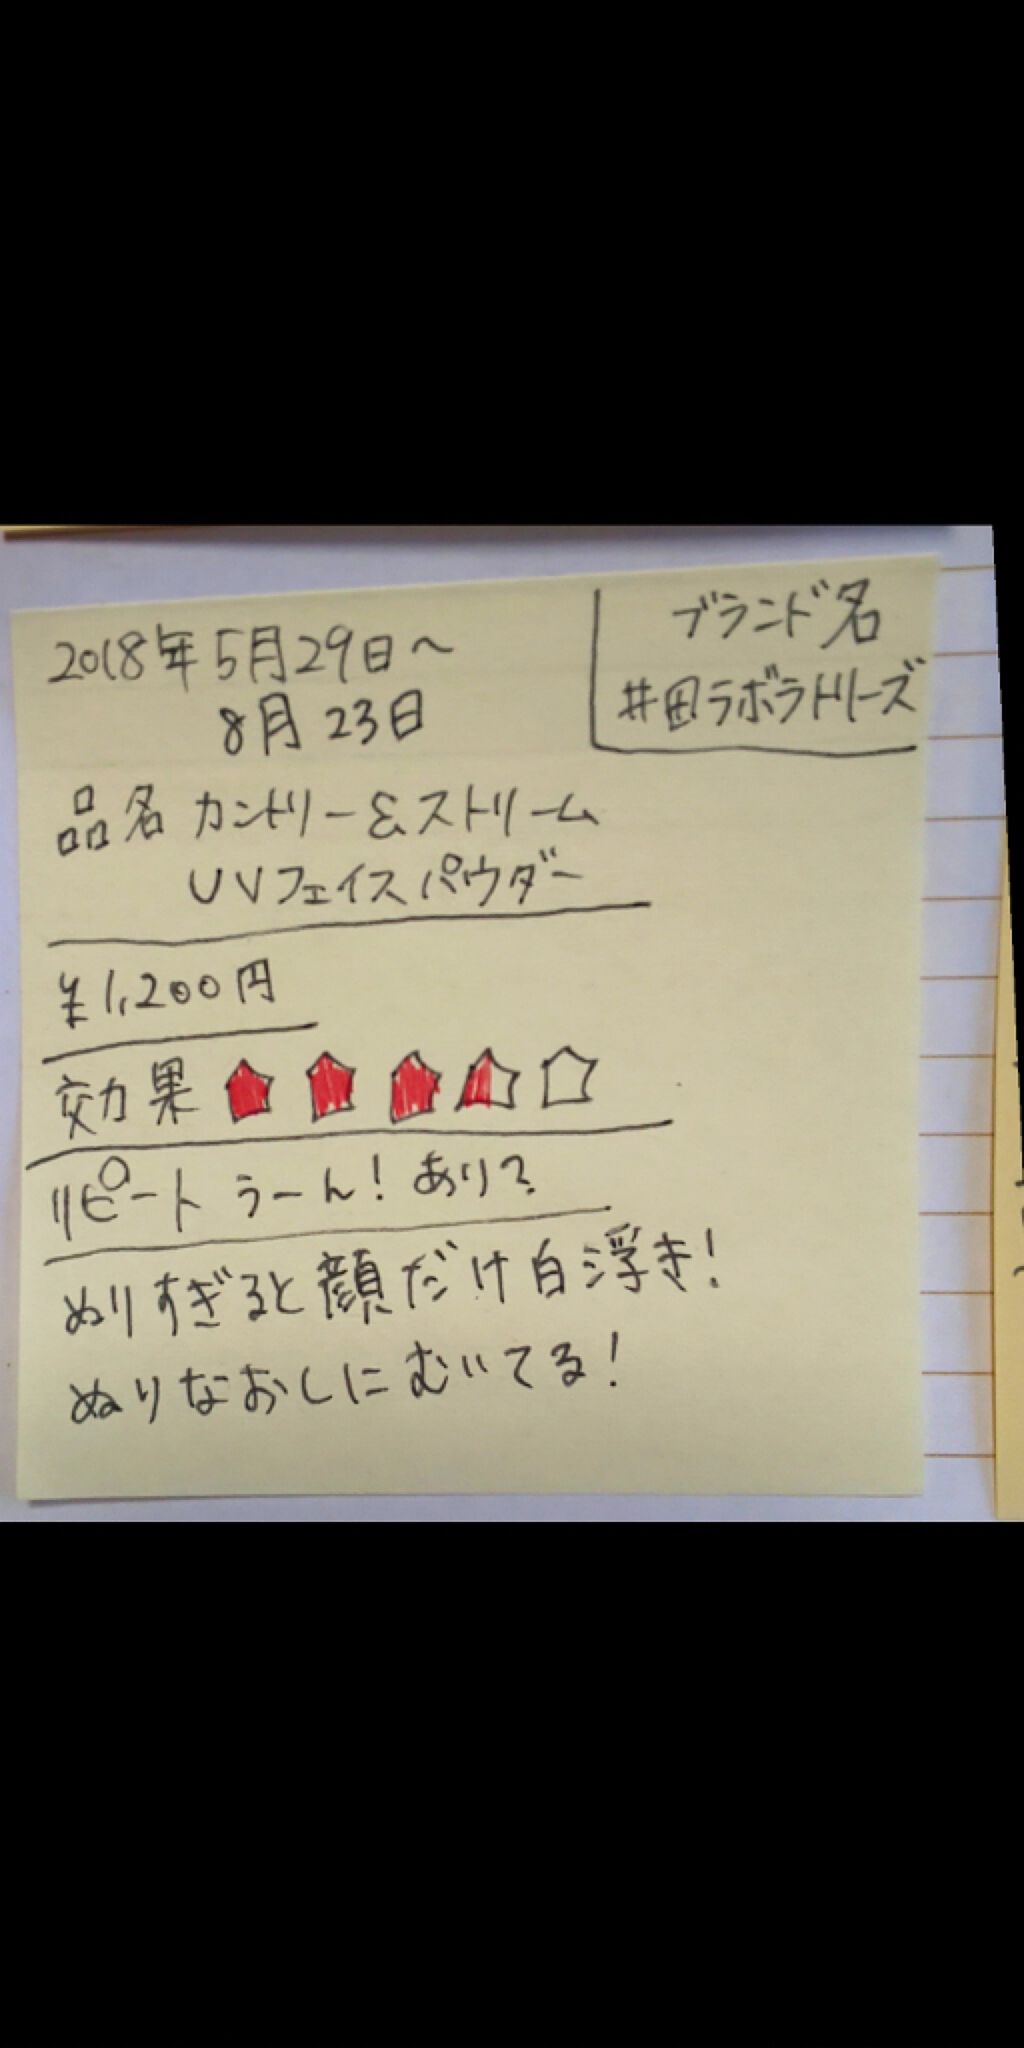 2018年5月29日～
8月23日
ブランド名
井田ラボラトリーズ
品名 カントリー&ストリーム
UVフェイスパウダー
¥1,200円
効果 ★★★
リピート うーん!あり?
ぬりすぎると顔だけ白浮き!
ぬりなおしにむいてる!